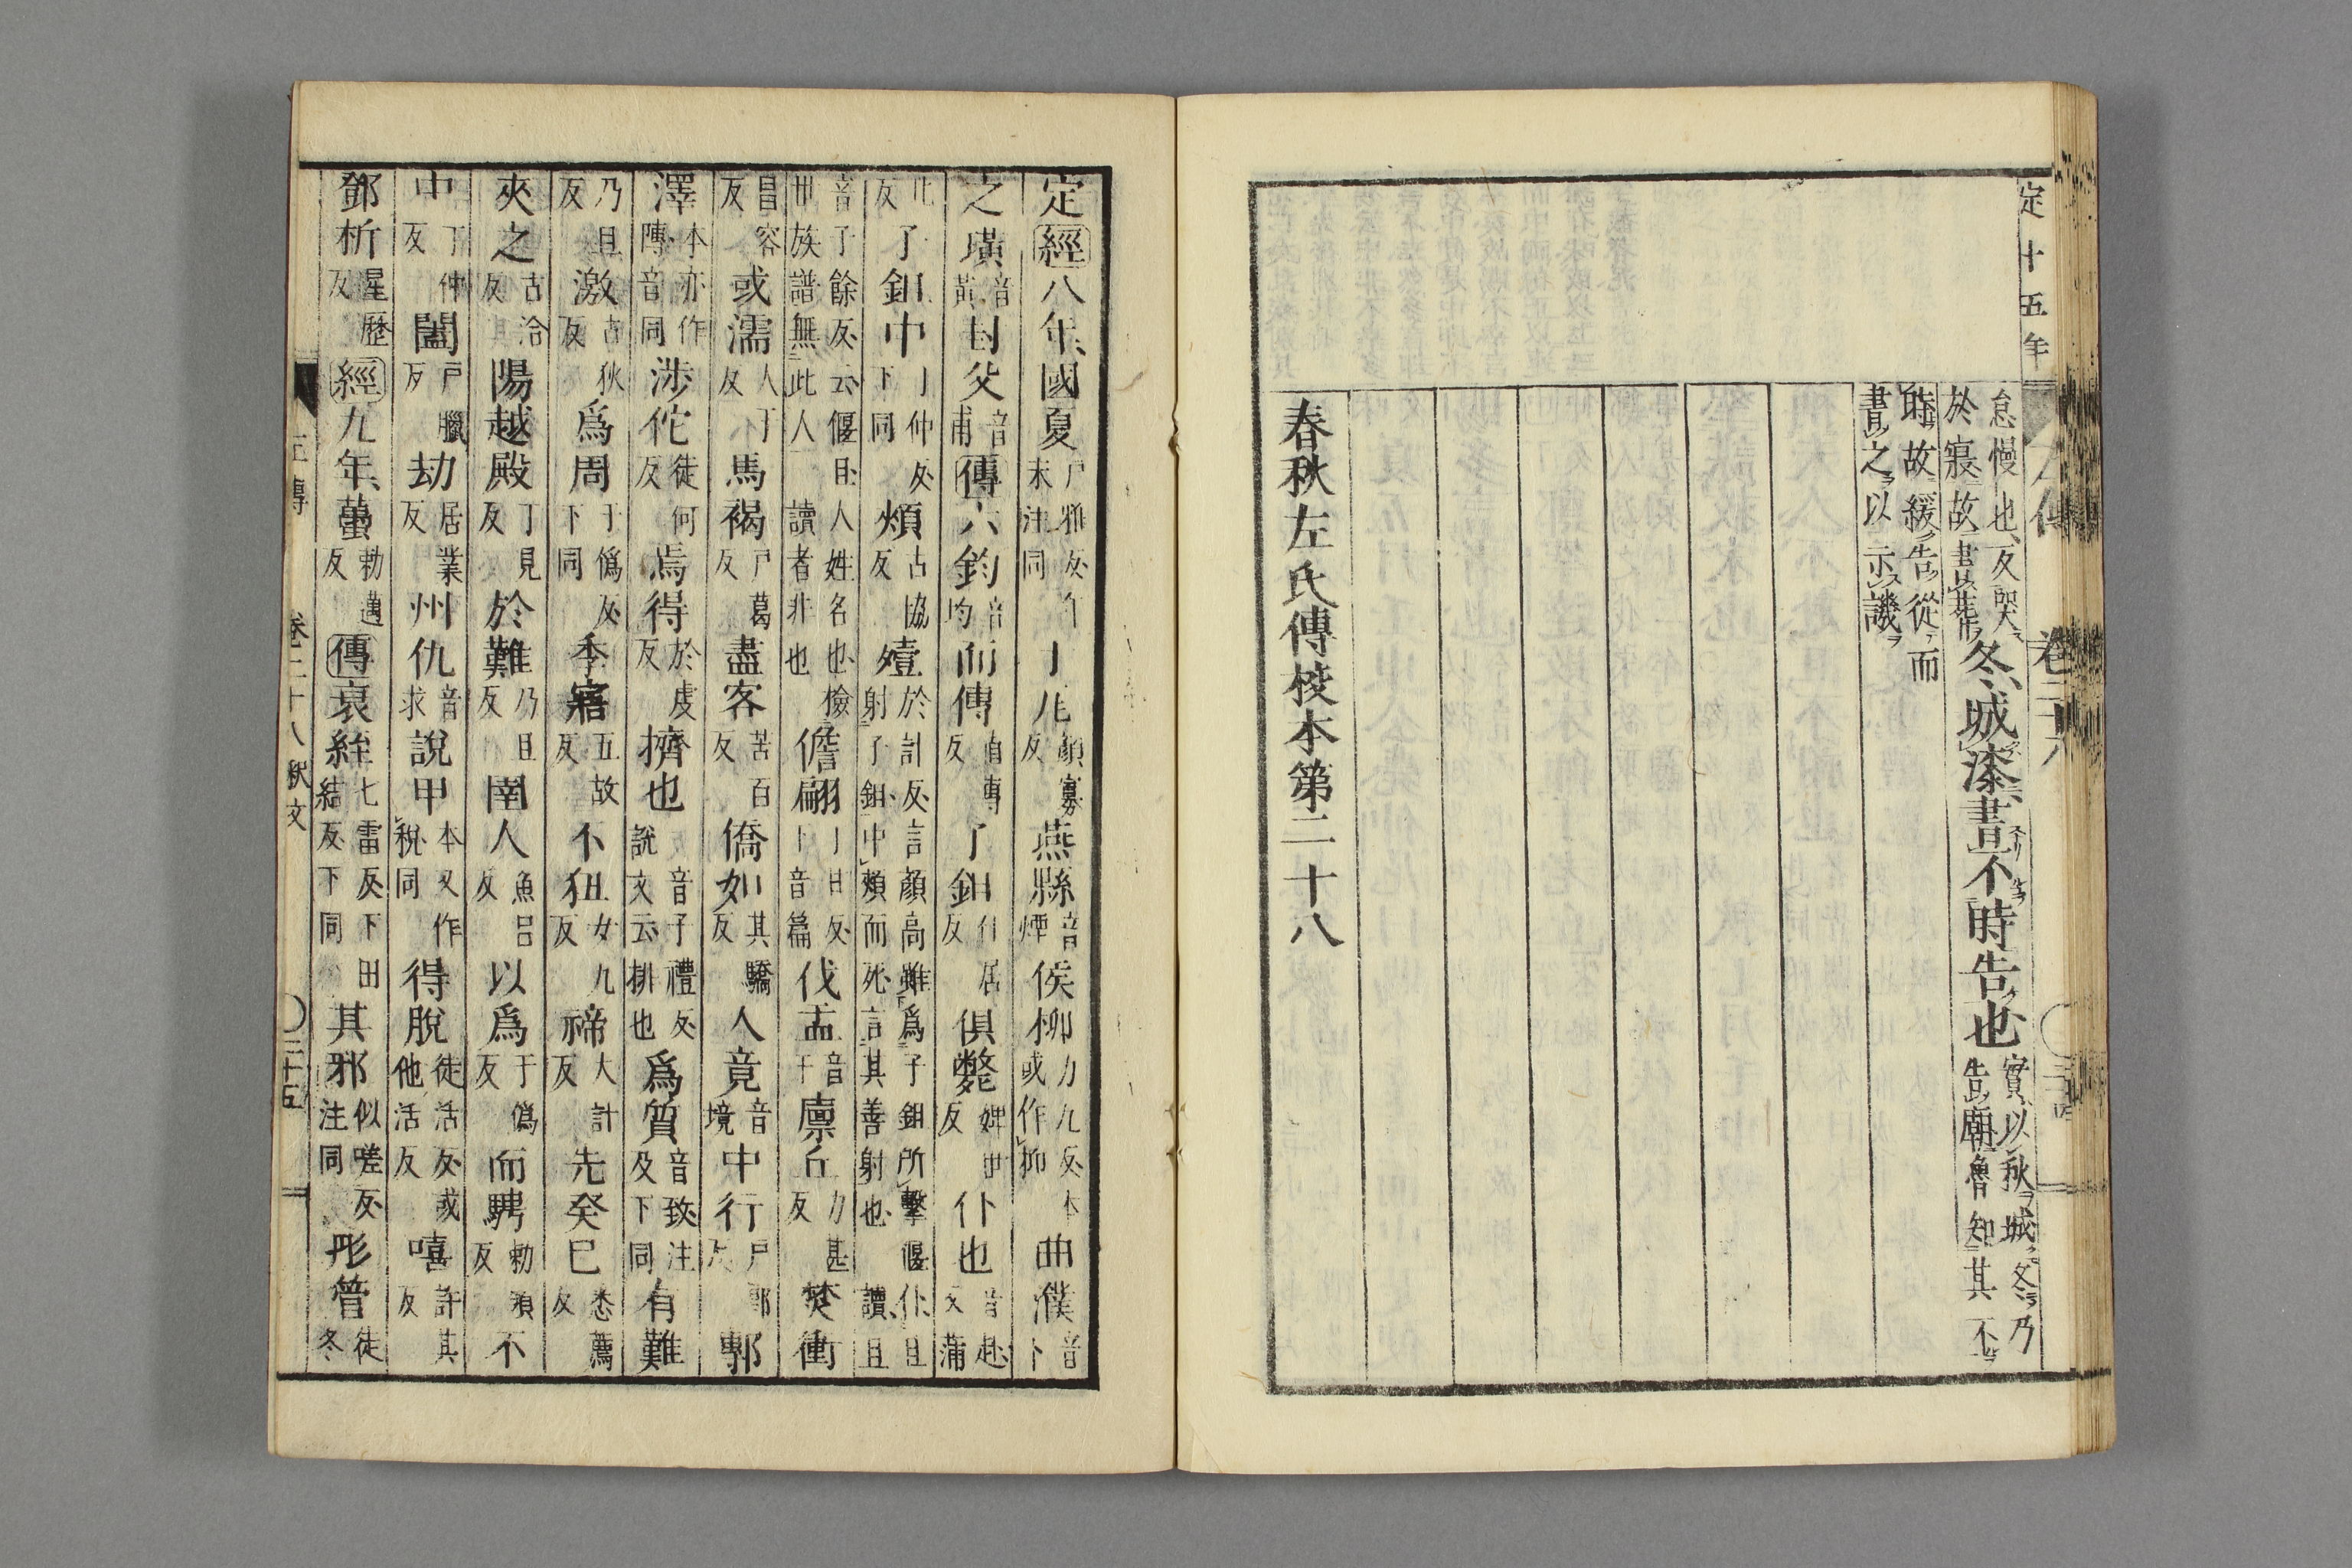 定十五年
左傳 卷二十八
怠慢也反哭
於寢故書葬冬城漆書不時告也實以秋城冬乃
告廟魯知其不
時故緩告從而
書之以示譏
春秋左氏傳校本第二十八
定經八年國夏戶雅反
末注同
顏寡
反燕縣音
煙侯柳力九反本
或作抑曲濮音
卜
之璜音
黃父音
甫傳六鈞音
均而傳直專
反了鉏仕居
反俱斃婢世
反仆也音赴
又蒲
北
反了鉏中丁仲反
下同頰古協
反殪於計反言顏高雖爲子鉏所擊偃仆且
射子鉏中頰而死言其善射也讀且
音子餘反云偃且人姓名也檢
世族譜無此人讀者非也儋翩丁甘反
下音篇伐盂音
于廩丘力甚
反焚衝
昌容
反或濡人于
反馬褐戶葛
反盡客苦百
反僑如其驕
反人竟音
境中行戶郎
反郭
澤本亦作
陣音同涉佗徒何
反焉得於虔
反捘也音子禮反
說文云排也爲質音致注
及下同有難
乃旦
反激古狄
反爲周于僞反
下同季寤五故
反不狃女九
反禘大計
反先癸巳悉薦
反
夾之古洽
反陽越殿丁見
反於難乃旦
反南人魚呂
反以爲于僞
反而騁勅領
反不
中丁仲
反闔戶臘
反劫居業
反州仇音
求說甲本又作
稅同得脫徒活反或
他活反嘻許其
反
鄧析星歷
反經九年蠆勅邁
反傳衰絰七雷反下田
結反下同其邪似嗟反
注同彤管徒
冬
左傳 卷二十八 釈文 二十五